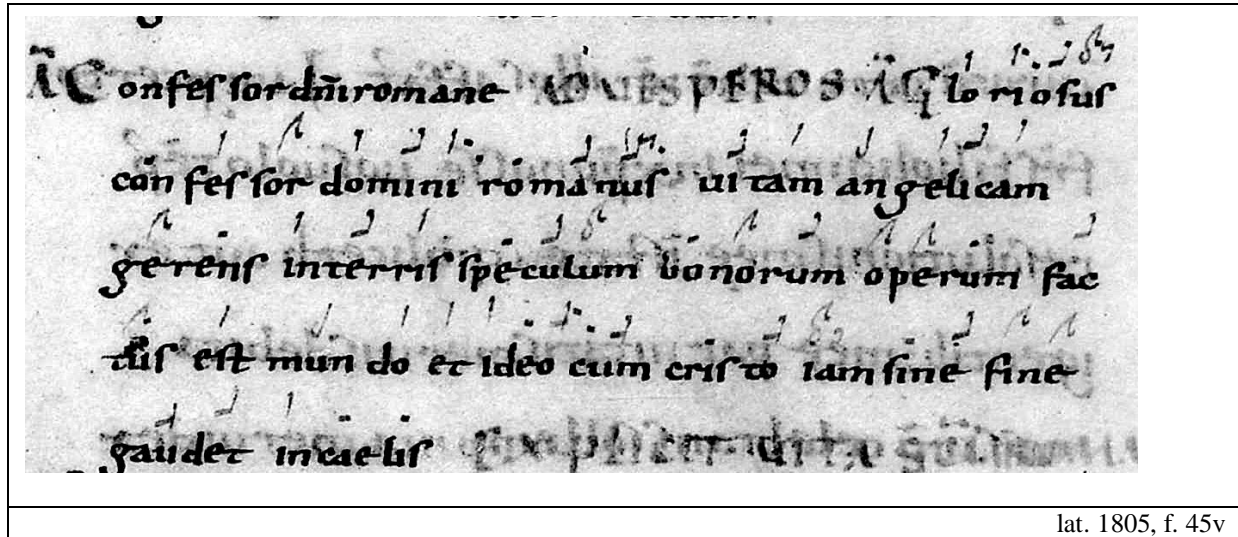 Ā Confessor dn̄i romane AD UESPEROS Ā Gloriosus
confessor domini romanus uitam angelicam
gerens in terris speculum bonorum operum fac
tus est mundo et ideo cum cristo iam sine fine
gaudet in caelis
lat. 1805, f. 45v